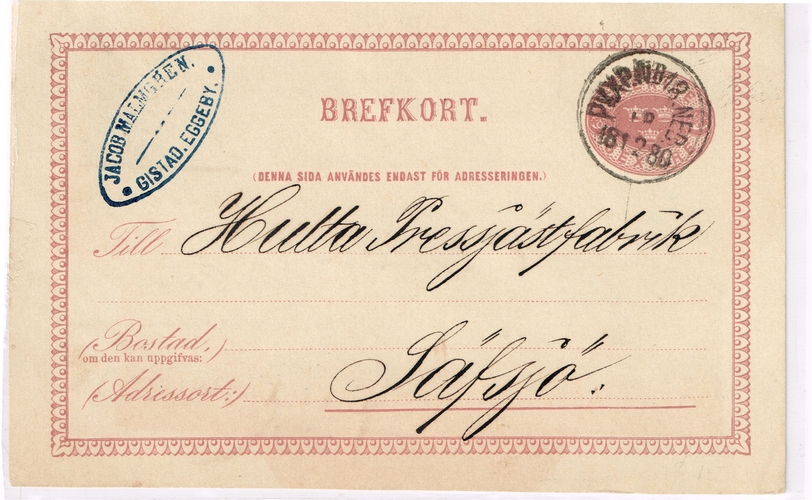 JACOB MALMGREN.
GISTAD. EGGEBY.
BREFKORT.
PKXP. Nº 19. NED
18 12 80
(DENNA SIDA ANVÄNDES ENDAST FÖR ADRESSERINGEN.)
Till Hulta Pressjästfabrik
(Bostad,
om den kan uppgifvas:)
Säfsjö.
(Adressort:)